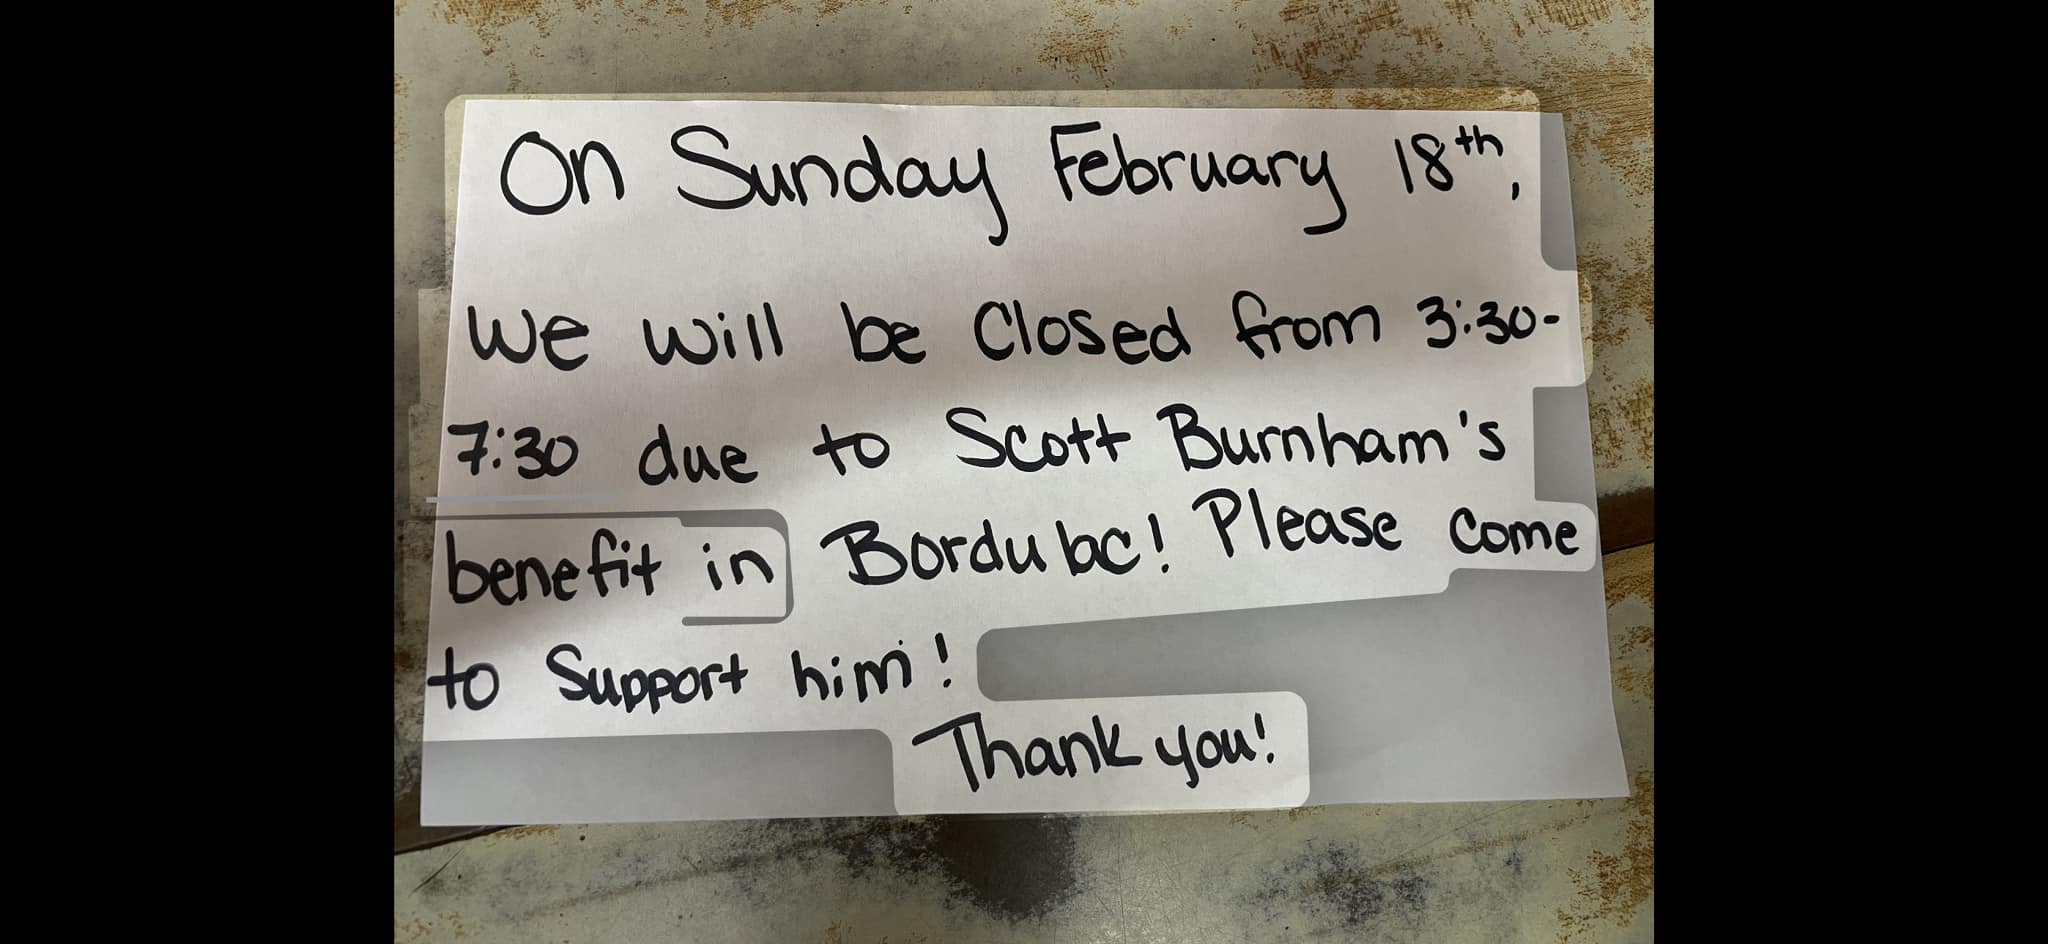 On Sunday February 18th,
we will be Closed from 3:30-
7:30 due to Scott Burnham's
benefit in Bordulac! Please come
to Support him!
Thank you!